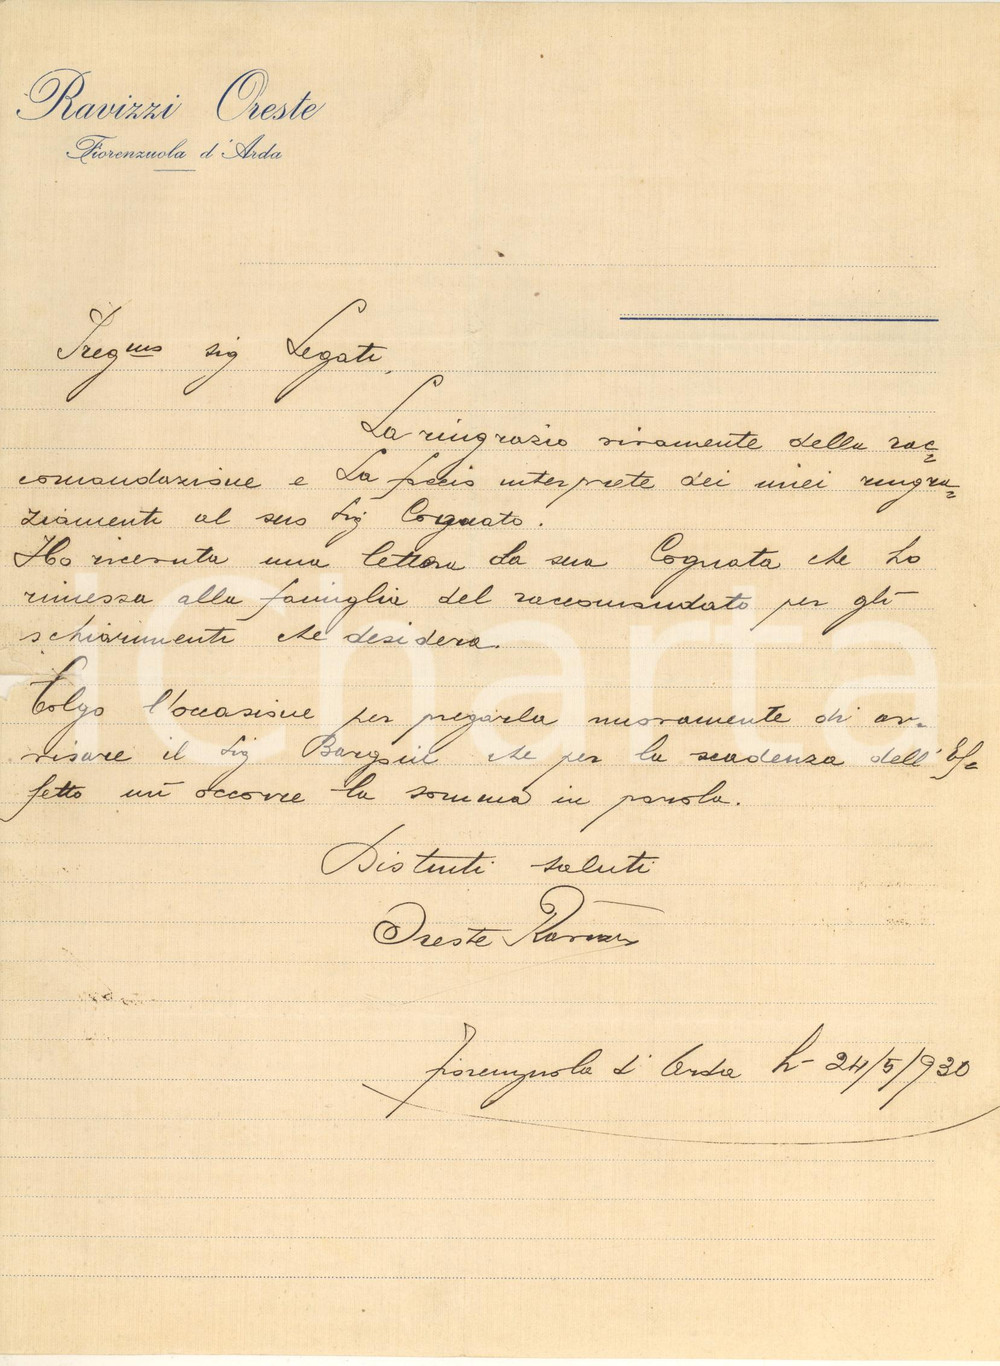 Ravizzi Oreste
Fiorenzuola d'Arda
Preg.mo sig Legati,
La ringrazio vivamente della rac=
comandazione e La facio interprete dei miei ringra=
ziamenti al suo Sig Cognato.
Ho ricevuta una lettera da sua Cognata che ho
rimessa alla famiglia del raccomandato per gli
schiarimenti che desidera.
Colgo l'occasione per pregarla nuovamente di av=
visare il Sig che per la scadenza dell' Ef=
fetto mi occorre la somma in parola.
Distinti saluti
Oreste Ravizzi
Fiorenzuola d'Arda li 24/5/930
iCharta